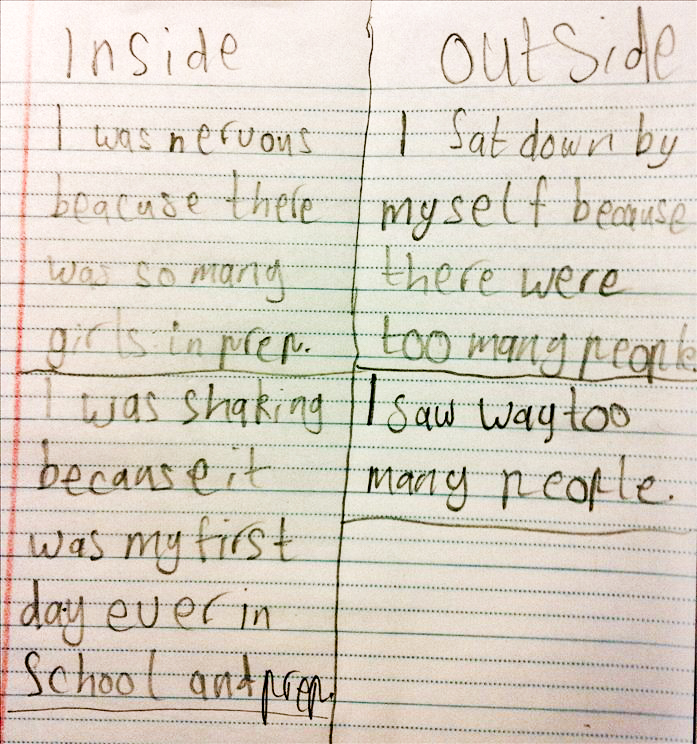 Inside
I was nervous
beacuse there
was so many
girls in prep.
I was shaking
because it
was my first
day ever in
School and prep.
outSide
I Sat down by
myself because
there were
too many people
I saw way too
many people.